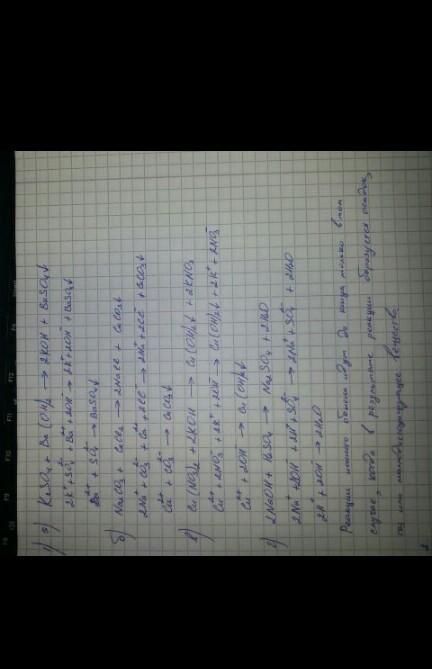 1) а) K₂SO₄ + Ba(OH)₂ → 2KOH + BaSO₄↓
2K⁺ + SO₄²⁻ + Ba²⁺ + 2OH⁻ → 2K⁺ + 2OH⁻ + BaSO₄↓
Ba²⁺ + SO₄²⁻ → BaSO₄↓
б) Na₂CO₃ + CaCl₂ → 2NaCl + CaCO₃↓
2Na⁺ + CO₃²⁻ + Ca²⁺ + 2Cl⁻ → 2Na⁺ + 2Cl⁻ + CaCO₃↓
Ca²⁺ + CO₃²⁻ → CaCO₃↓
в) Cu(NO₃)₂ + 2KOH → Cu(OH)₂↓ + 2KNO₃
Cu²⁺ + 2NO₃⁻ + 2K⁺ + 2OH⁻ → Cu(OH)₂↓ + 2K⁺ + 2NO₃⁻
Cu²⁺ + 2OH⁻ → Cu(OH)₂↓
г) 2NaOH + H₂SO₄ → Na₂SO₄ + 2H₂O
2Na⁺ + 2OH⁻ + 2H⁺ + SO₄²⁻ → 2Na⁺ + SO₄²⁻ + 2H₂O
2H⁺ + 2OH⁻ → 2H₂O
Реакции ионного обмена идут до конца только в том
случае, когда в результате реакции образуется осадок,
газ или малодиссоциирующее вещество.